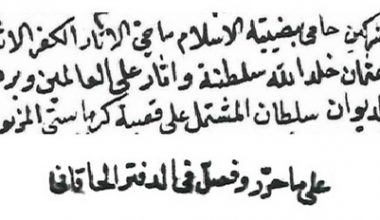 حامي بيضة الاسلام ماحي الاثار الكفر
عثمان خلد الله سلطنة واثار على العالمين
ديوان سلطان المشتمل على قصبة كرماستى المزبو
على ما حرّر وفصل فى الدفتر الخاقانى